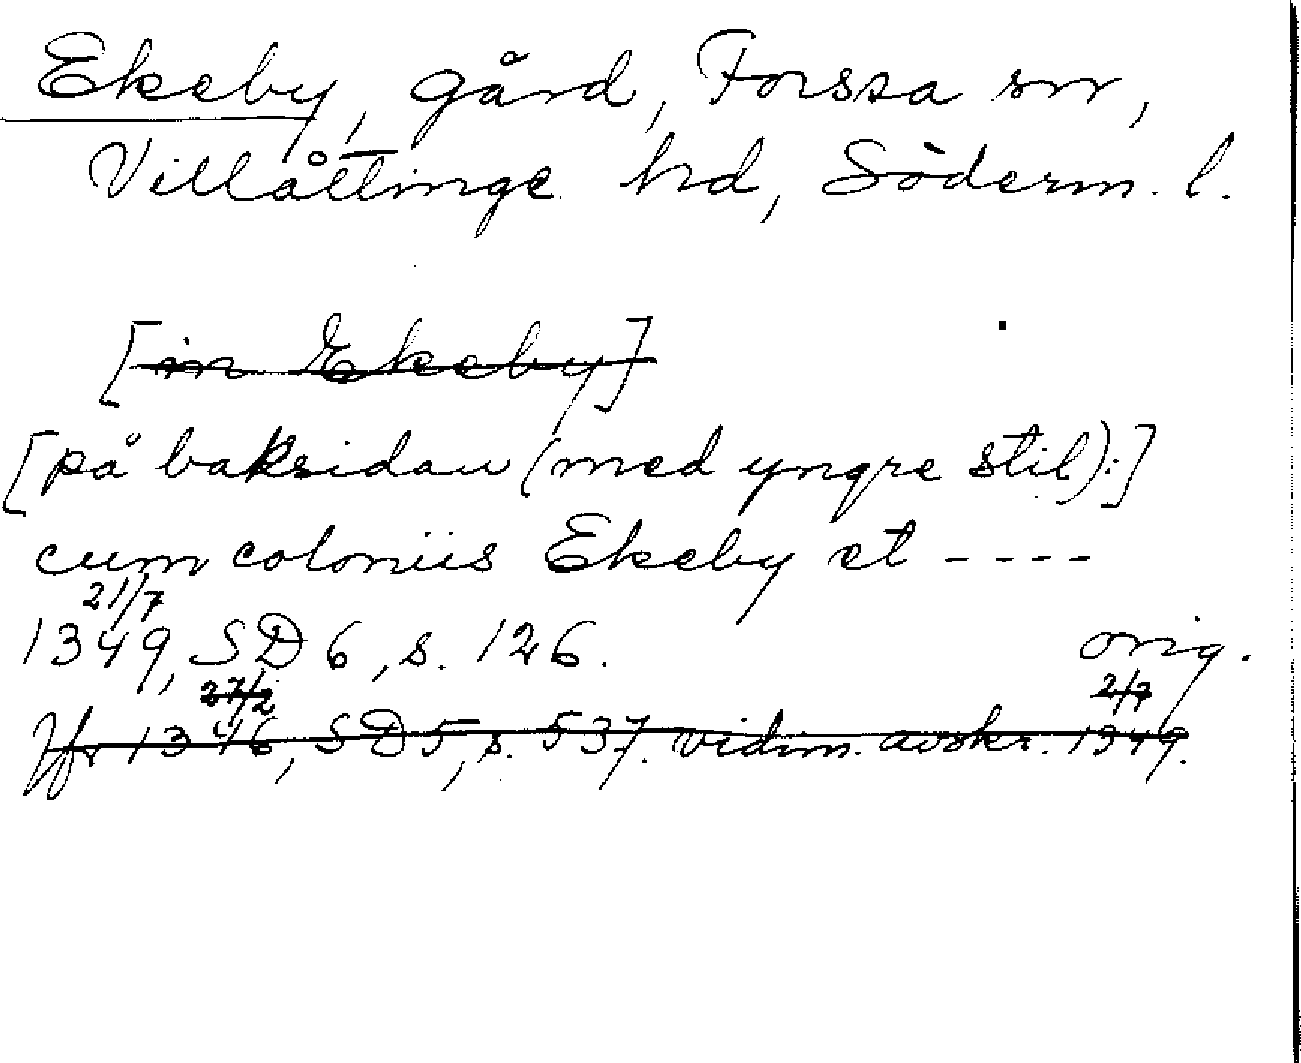 Ekeby, gård, Forssa sn,
Villåttinge hd, Söderm. l.
[in Ekeby]
[på baksidan (med yngre stil):]
cum coloniis Ekeby et ----
21/7
1349, SD 6, s. 126. orig.
27/2 2/7
Jfr 1346, SD 5, s. 537. vidim. avskr. 1349.